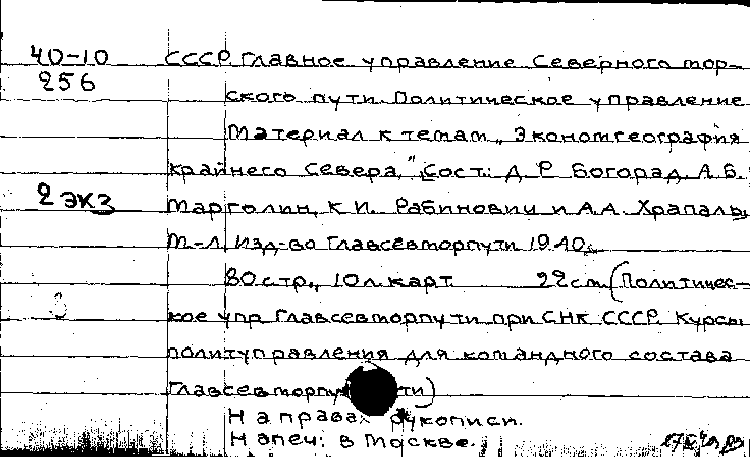 40-10 СССР Главное управление Северного мор-
256 ского пути. Политическое управление
Материал к темам „Экономгеография
Крайнего Севера," Сост.: Д. Р. Богорад, А. Б.
2 экз Марголин, К. И. Рабинович и А. А. Храпаль
М.-Л. Изд-во Главсевморпути 1940.
80 стр., 10 л. карт 22 см (Политичес-
кое упр. Главсевморпути при СНК СССР. Курсы
политуправления для командного состава
Главсевморпути)
На правах рукописи.
Напеч: в Москве.